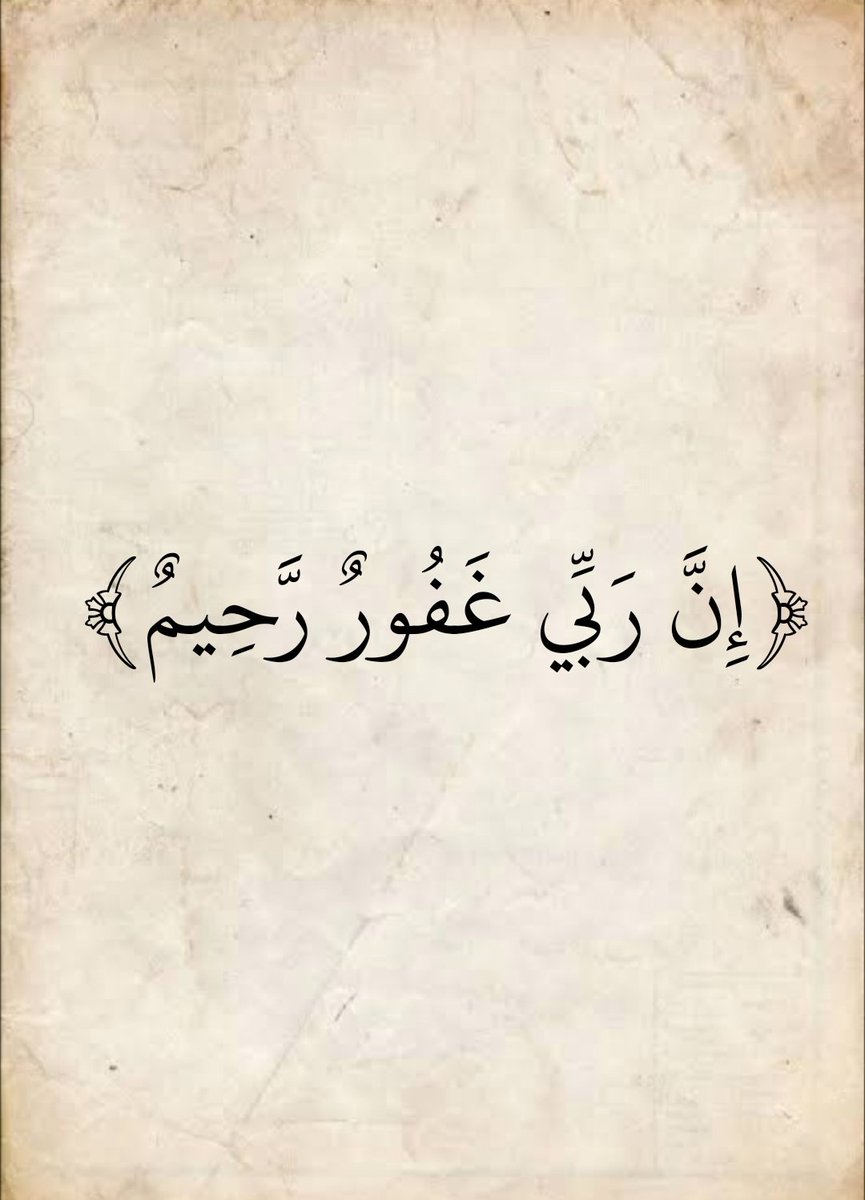 ﴿إِنَّ رَبِّي غَفُورٌ رَّحِيمٌ﴾